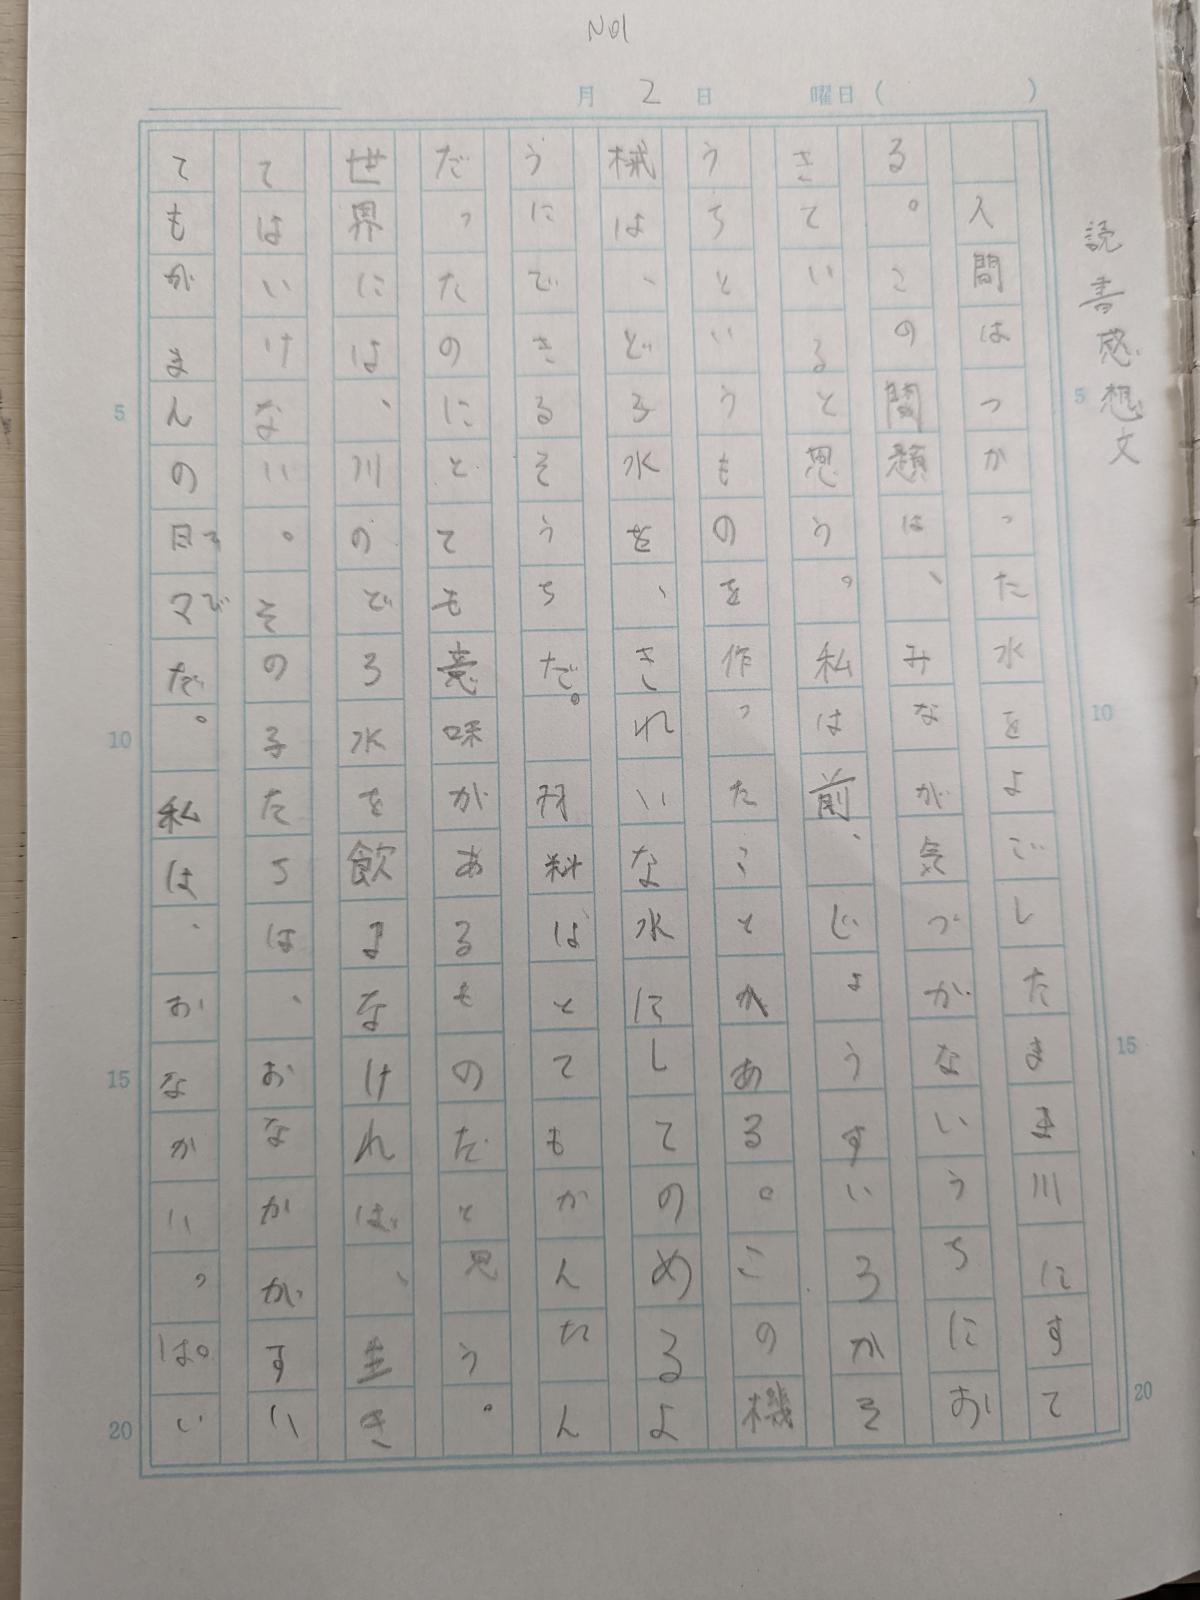 No1
月 2 日 曜日 ( )
読書感想文
人間はつかった水をよごしたまま川にすて
る。この問題は、みなが気づかないうちにお
きていると思う。私は前、じょうすいろかそ
うちというものを作ったことがある。この機
械は、どろ水を、きれいな水にしてのめるよ
うにできるそうちだ。材料はとてもかんたん
だったのにとても意味があるものだと思う。
世界には、川のどろ水を飲まなければ、生き
てはいけない。その子たちは、おなかがすい
てもがまんの日々までだ。私は、おなかいっぱい
5
10
15
20
5
10
15
20